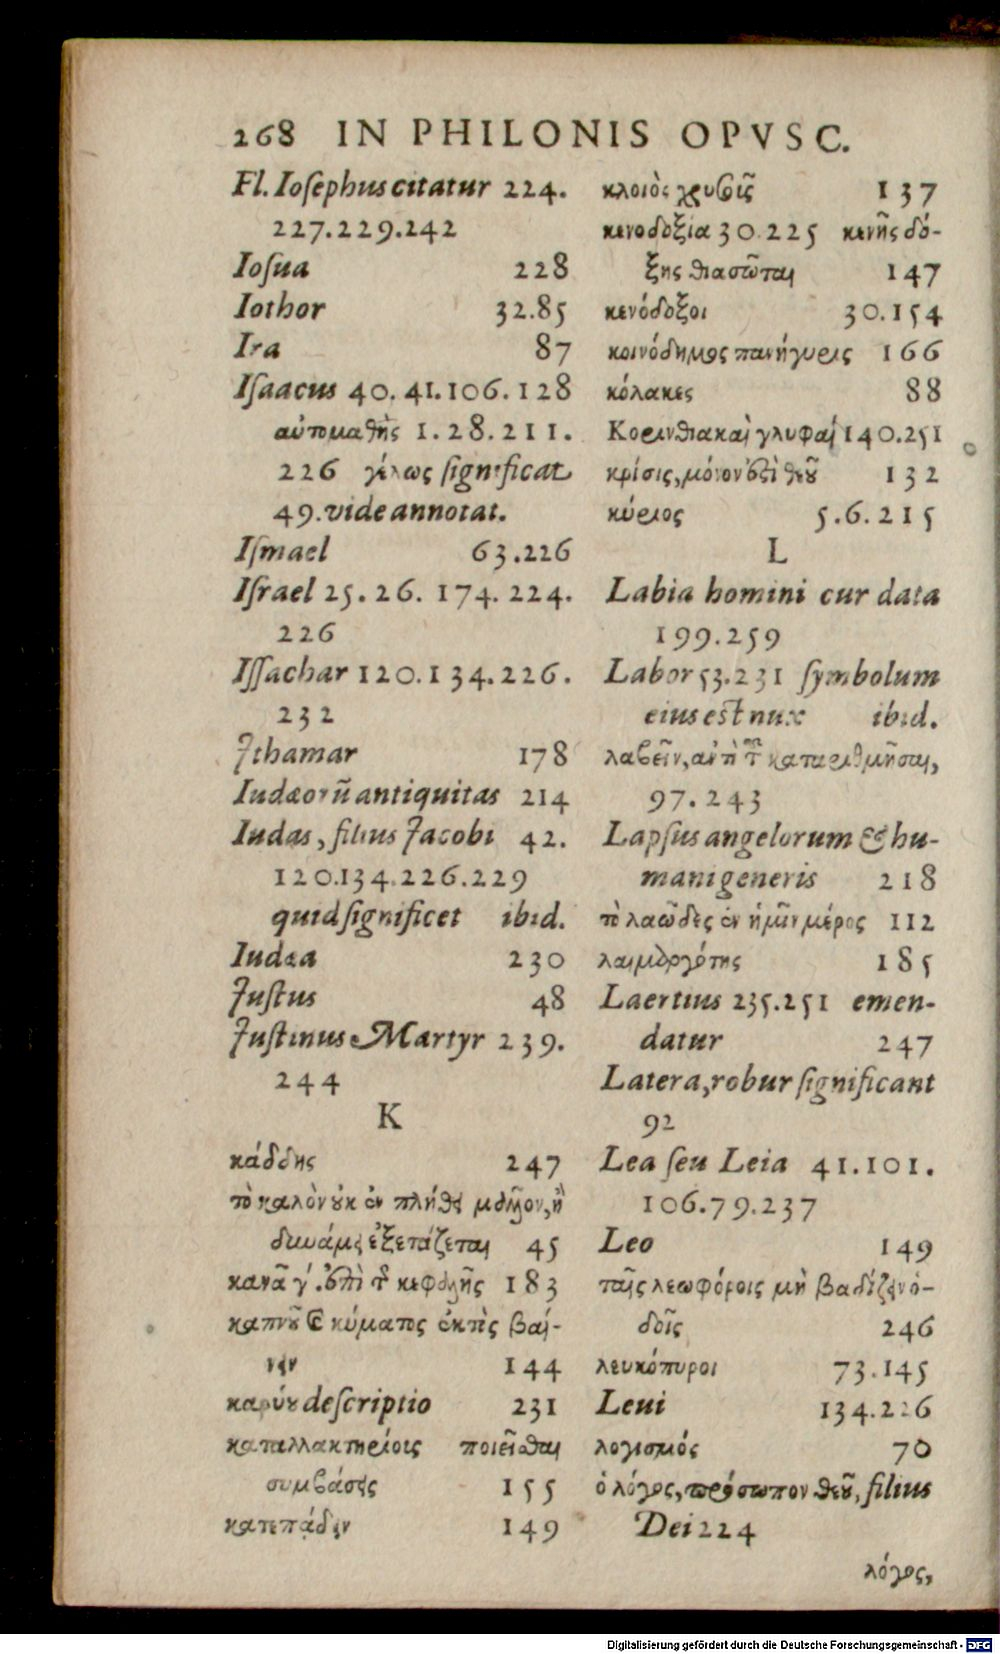 268 IN PHILONIS OPVSC.
Fl. Iosephus citatur 224.
227.229.242
Iosua 228
Iothor 32.85
Ira 87
Isaacus 40. 41. 106. 128
αὐτομαθὴς 1. 28. 211.
226 γέλως significat
49. vide annotat.
Ismael 63.226
Israel 25. 26. 174. 224.
226
Issachar 120.134.226.
232
Ithamar 178
Iudæorũ antiquitas 214
Iudas, filius Jacobi 42.
120.134.226.229
quid significet ibid.
Iudæa 230
Justus 48
Justinus Martyr 239.
244
K
κάδδης 247
τὸ καλὸν οὐκ ἐν πλήθει μᾶλλον, ἢ
δυνάμει ἐξετάζεται 45
κατὰ γ΄. ἐπὶ τ κεφαλῆς 183
καπνοῦ & κύματος ἐκτὸς βαί-
νειν 144
καρύου descriptio 231
καταλλακτηρίοις ποιεῖσθαι
συμβάσεις 155
κατεπᾴδειν 149
κλοιὸς χρυσοῦς 137
κενοδοξία 30.225 κενῆς δό-
ξης θιασῶται 147
κενόδοξοι 30.154
κοινόδημος πανήγυρις 166
κόλακες 88
Κορινθιακαὶ γλυφαί 140.251
κρίσις, μόνον ἐστὶ θεοῦ 132
κύριος 5.6.215
L
Labia homini cur data
199.259
Labor 53.231 symbolum
eius est nux ibid.
λαβεῖν, ἀντὶ τ καταριθμῆσαι,
97. 243
Lapsus angelorum & hu-
mani generis 218
τὸ λαῶδες ἐν ἡμῖν μέρος 112
λαιμαργότης 185
Laertius 235.251 emen-
datur 247
Latera, robur significant
92
Lea seu Leia 41.101.
106.79.237
Leo 149
ταῖς λεωφόροις μὴ βαδίζειν ὁ-
δοῖς 246
λευκόπυροι 73.145
Leui 134.226
λογισμός 70
ὁ λόγος, πρόσωπον θεοῦ, filius
Dei 224
λόγος,
Digitalisierung gefördert durch die Deutsche Forschungsgemeinschaft - DFG